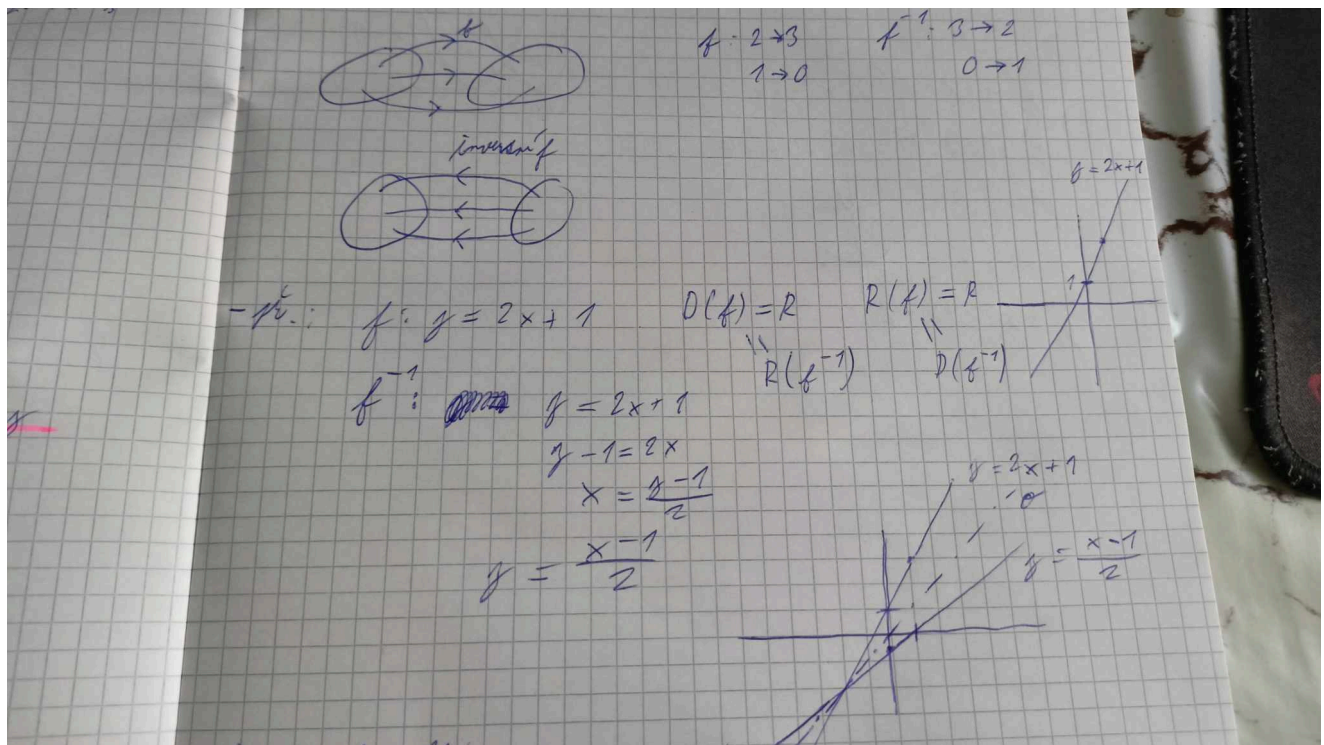 f
f: 2→3 f⁻¹: 3→2
1→0 0→1
inversní f
y = 2x+1
1
- př.: f: y = 2x + 1 D(f) = R R(f) = R
= R(f⁻¹) = D(f⁻¹)
f⁻¹: y = 2x + 1
y - 1 = 2x
x = (y-1)/2
y = (x-1)/2
y = 2x+1
o
y = (x-1)/2
y